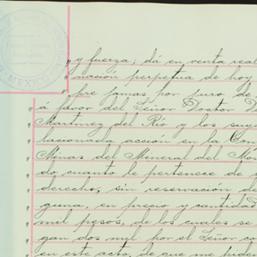 y fuerza; dá en venta real
nacion perpetua de hoy
pre jamas por juro de
á favor del Señor Doctor D
Martinez del Rio y los suyo
lacionada accion en la Com
Minas del Mineral del Mon
do cuanto le pertenece de
derecho, sin reservacion de
guna, en precio y cantidad
mil pesos, de los cuales se
gan dos mil por el Señor co
en este acto, de que me
MEXICO